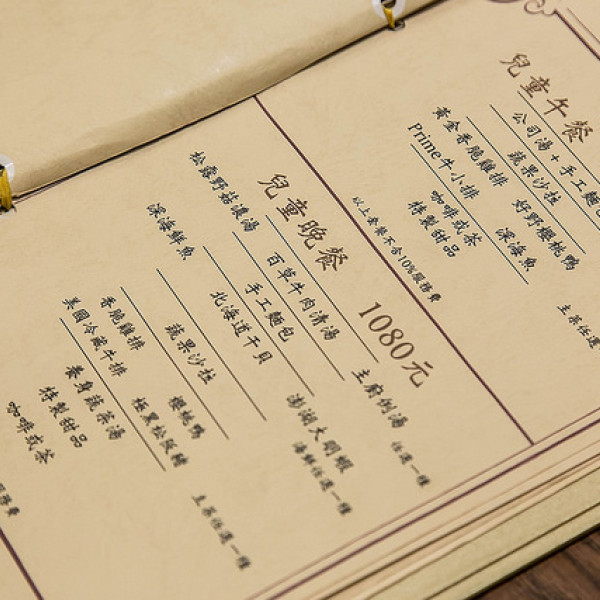 兒童午餐
公司湯+手工麵包
蔬果沙拉
黃金香脆雞排 好野櫻桃鴨
Prime牛小排 深海魚
主菜任選
咖啡或茶
特製甜品
以上套餐不含10%服務費
兒童晚餐 1080元
松露野菇濃湯 百草牛肉清湯 主廚例湯 任選一種
手工麵包
深海鮮魚 北海道干貝 澎湖大明蝦 海鮮任選一種
蔬果沙拉
香脆雞排 櫻桃鴨
美國冷藏牛排 極黑松阪豬 主菜任選一種
養身蔬茶湯
特製甜品
咖啡或茶
服務費